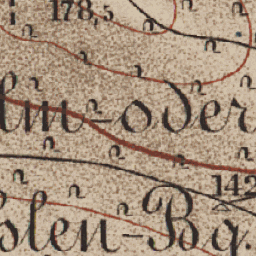 178,5
lm-oder
142
olen-Bg.